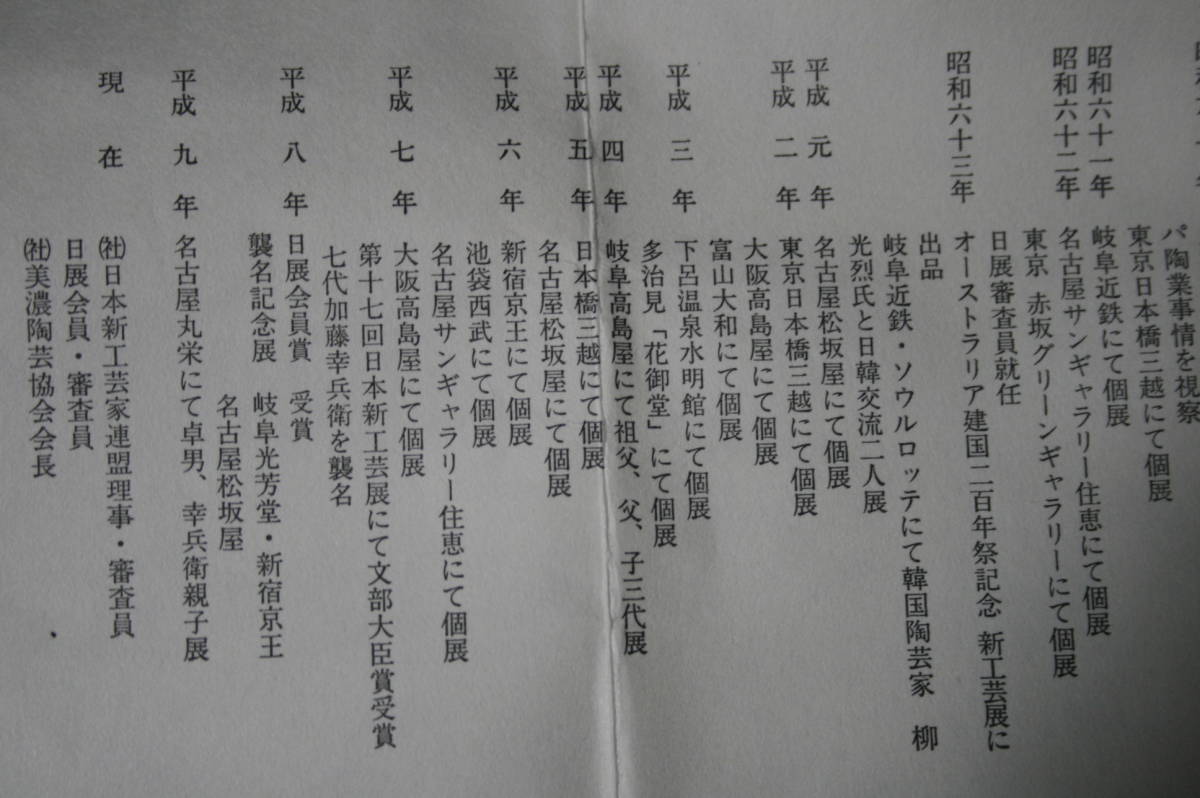 パ陶業事情を視察
東京日本橋三越にて個展
昭和六十一年 岐阜近鉄にて個展
昭和六十二年 名古屋サンギャラリー住恵にて個展
東京 赤坂グリーンギャラリーにて個展
日展審査員就任
昭和六十三年 オーストラリア建国二百年祭記念 新工芸展に
出品
岐阜近鉄・ソウルロッテにて韓国陶芸家 柳
光烈氏と日韓交流二人展
平成 元 年 名古屋松坂屋にて個展
平成 二 年 東京日本橋三越にて個展
大阪高島屋にて個展
富山大和にて個展
平成 三 年 下呂温泉水明館にて個展
多治見「花御堂」にて個展
平成 四 年 岐阜高島屋にて祖父、父、子三代展
平成 五 年 日本橋三越にて個展
名古屋松坂屋にて個展
平成 六 年 新宿京王にて個展
池袋西武にて個展
名古屋サンギャラリー住恵にて個展
平成 七 年 大阪高島屋にて個展
第十七回日本新工芸展にて文部大臣賞受賞
七代加藤幸兵衛を襲名
平成 八 年 日展会員賞 受賞
襲名記念展 岐阜光芳堂・新宿京王
名古屋松坂屋
平成 九 年 名古屋丸栄にて卓男、幸兵衛親子展
現 在 ㈳日本新工芸家連盟理事・審査員
日展会員・審査員
㈳美濃陶芸協会会長